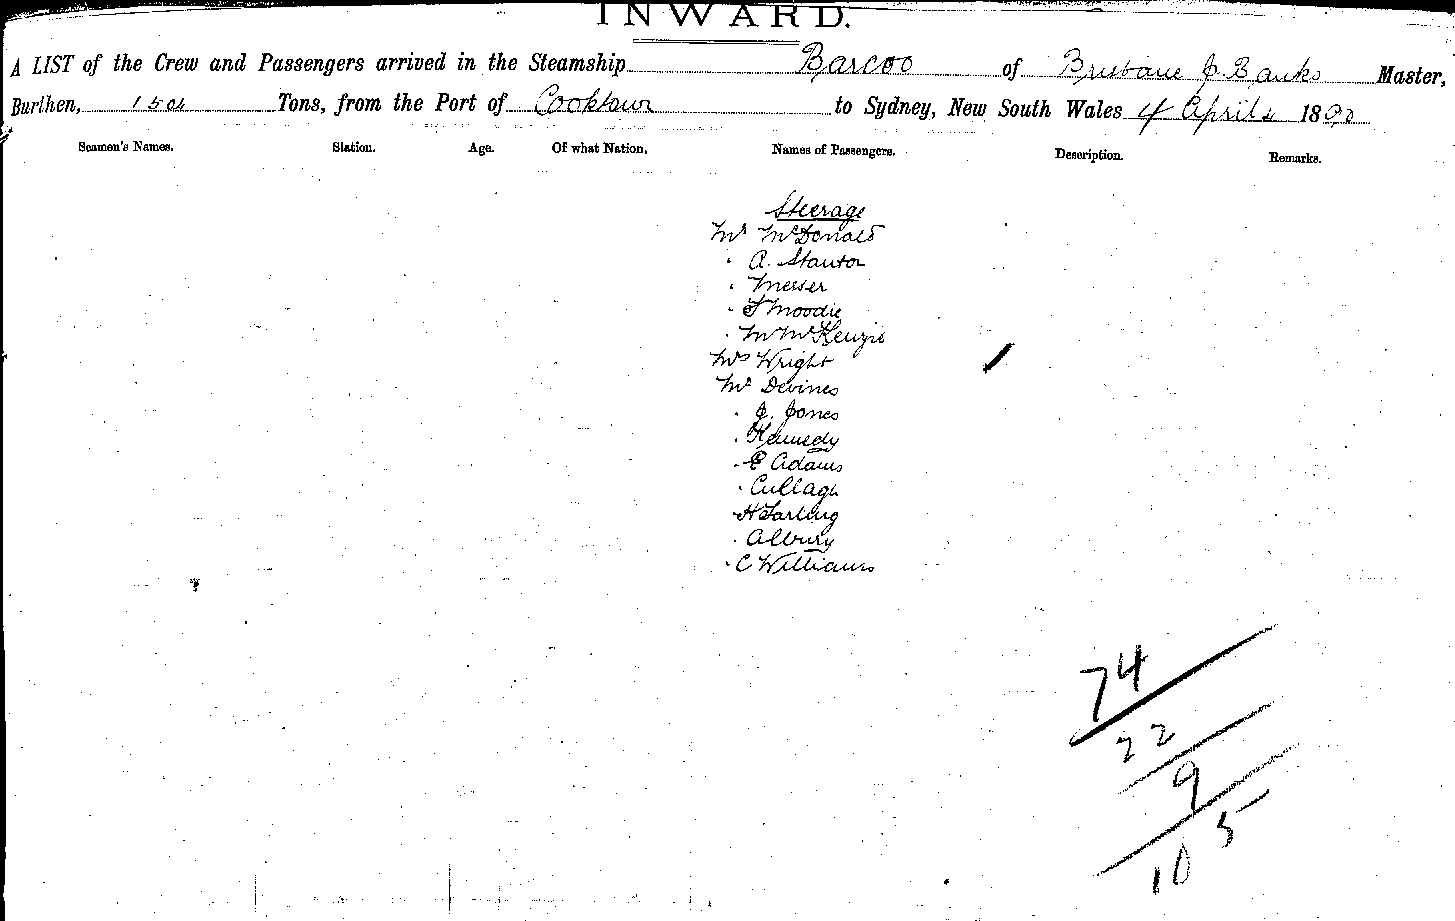 INWARD.
A LIST of the Crew and Passengers arrived in the Steamship Barcoo of Brisbane J. Banks Master,
Burthen, 1504 Tons, from the Port of Cooktown to Sydney, New South Wales 4 April 1890
Seamen's Names. Station. Age. Of what Nation. Names of Passengers. Description. Remarks.
Steerage
Mr McDonald
" A. Stanton
" Messer
" Moodie
" M McKenzie
Mrs Wright
Mr Devines
" J. Jones
" Kennedy
" E Adams
" Cullagh
" H Tarling
" Albury
" C Williams
74
22
9
5
10